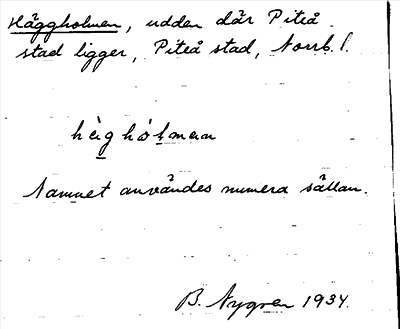 Häggholmen, udden där Piteå
stad ligger, Piteå stad, Norrb. l.
Namnet användes numera sällan.
B. Nygren 1934.